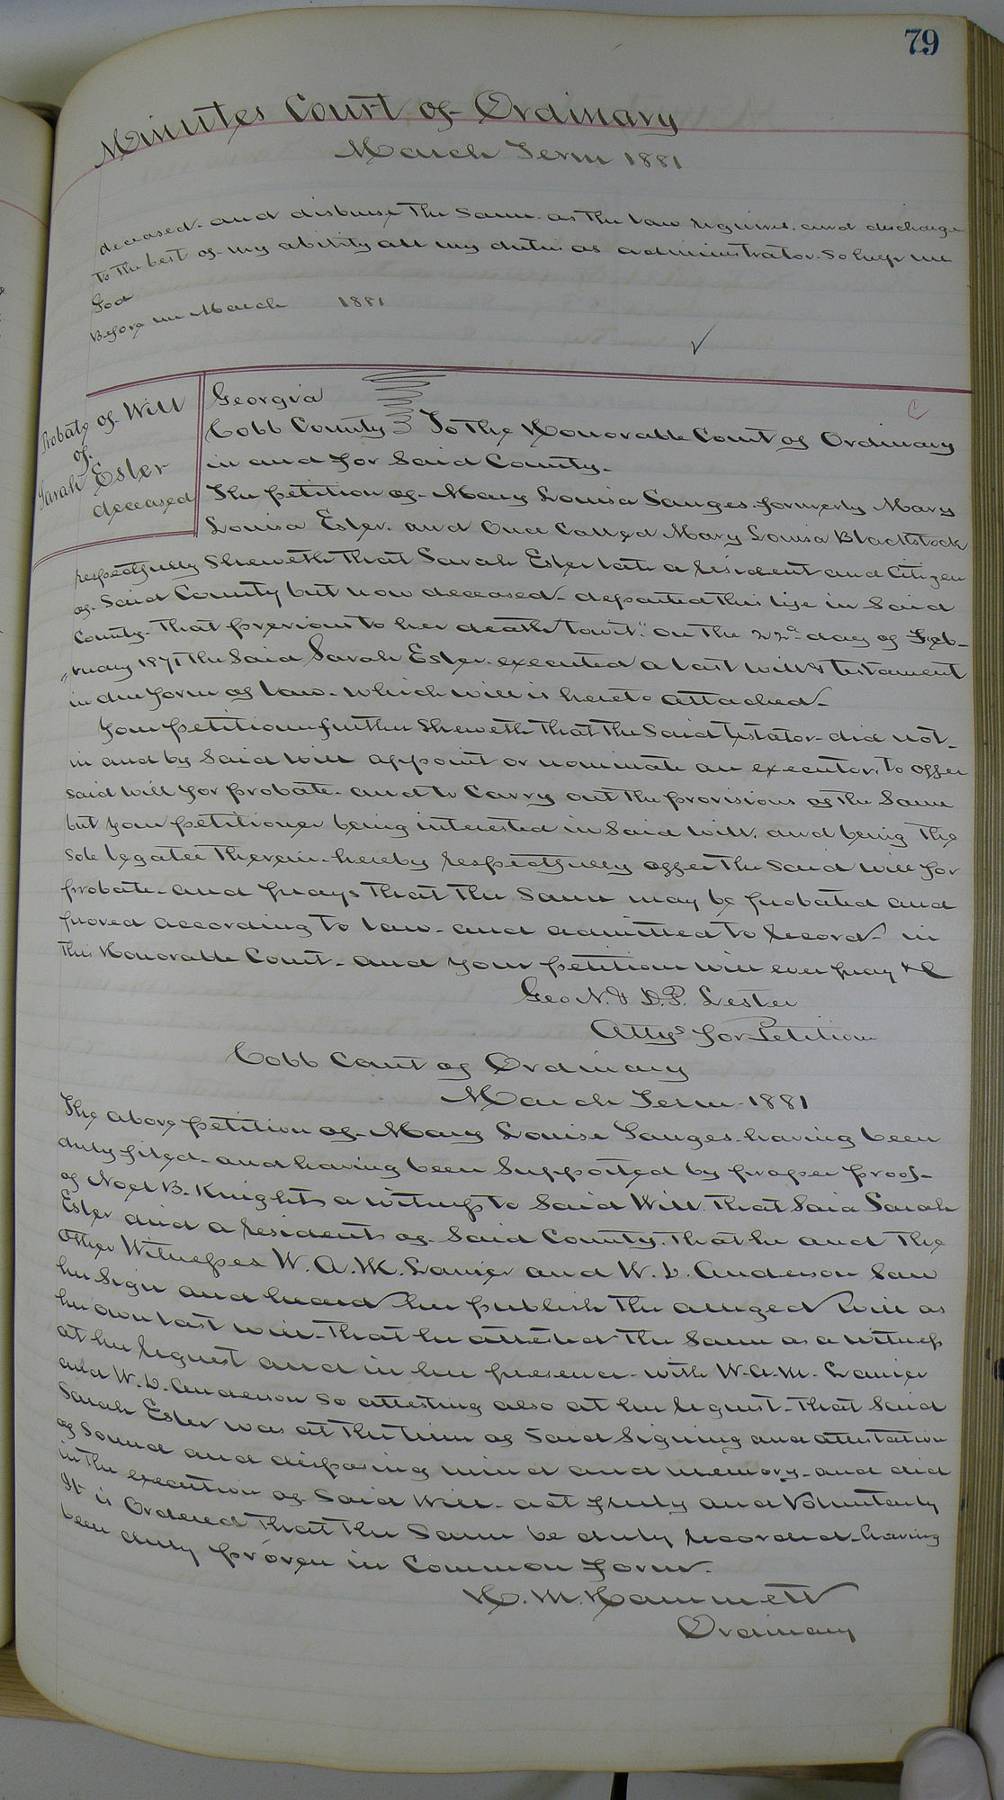 79
Minutes Court of Ordinary
March Term 1881
deceased. and disburse the same. as the law requires. and discharge
to the best of my ability all my duties as administrator. So help me
God
Before me March 1881
Probate of Will
of
Sarah Ester
deceased
Georgia
Cobb County } To the Honorable Court of Ordinary
in and for said County.
The petition of Mary Louisa Sanges. formerly Mary
Louisa Ester. and once called Mary Louisa Blackstock
respectfully sheweth that Sarah Ester late a resident and citizen
of said County but now deceased. departed this life in said
County. That previous to her death "towit" on the 22d day of Feb-
"ruary 1871 the said Sarah Ester. executed a last will & testament
in due form of law. which will is hereto attached.
Your petitioner further sheweth that the said testator did not
in and by said will appoint or nominate an executor. to offer
said will for probate. and to carry out the provisions of the same
but your petitioner being interested in said will. and being the
sole legatee therein. hereby respectfully offer the said will for
probate. and prays that the same may be probated and
proved according to law. and admitted to record in
this Honorable Court. and your petition will ever pray &c
Geo N. & D.P. Lester
Attys for Petition
Cobb Court of Ordinary
March Term 1881
The above petition of Mary Louise Sanges. having been
duly filed. and having been supported by proper proof.
of Noel B. Knights a witness to said will. That said Sarah
Ester did a resident of said County. That he and the
other witnesses W. A. M. Lanier and W. L. Anderson saw
her sign and heard her publish the alleged will as
her own last will. That he attested the same as a witness
at her request and in her presence. with W. A. M. Lanier
and W. L. Anderson so attesting also at her request. That said
Sarah Ester was at the time of said signing and attestation
of sound and disposing mind and memory. and did
in the execution of said will. act freely and voluntarily
It is ordered that the same be duly recorded. having
been duly proven in common form.
H. M. Hammett
Ordinary